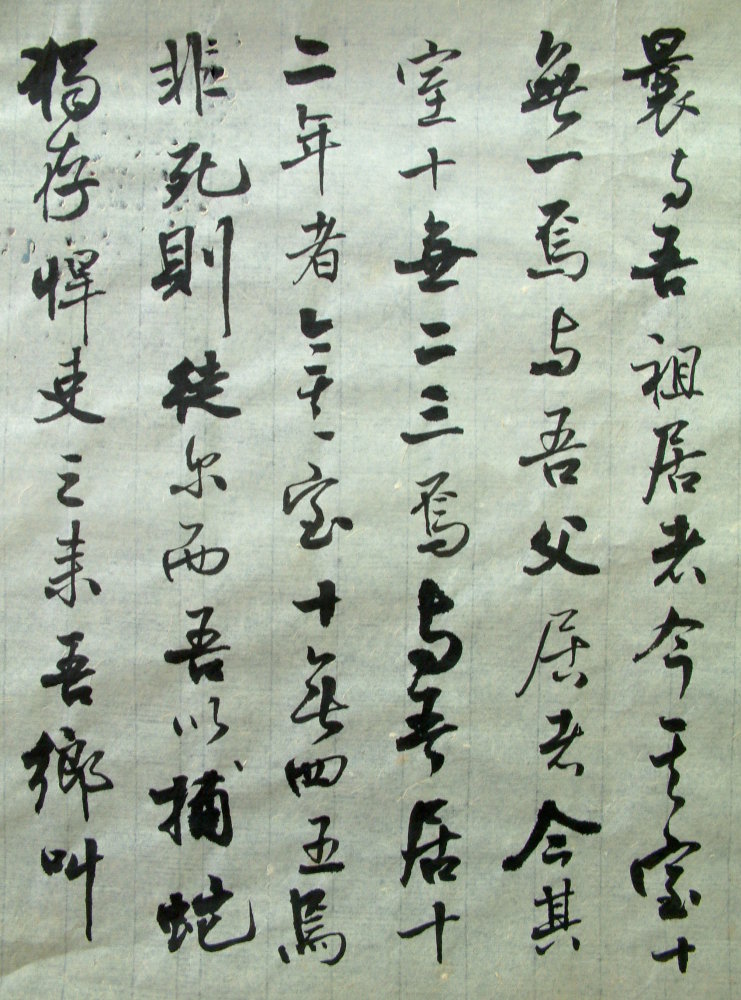 曩与吾祖居者今其室十
無一焉与吾父居者今其
室十無二三焉与吾居十
二年者今其室十無四五焉
非死則徙尔而吾以捕蛇
獨存悍吏之来吾鄉叫